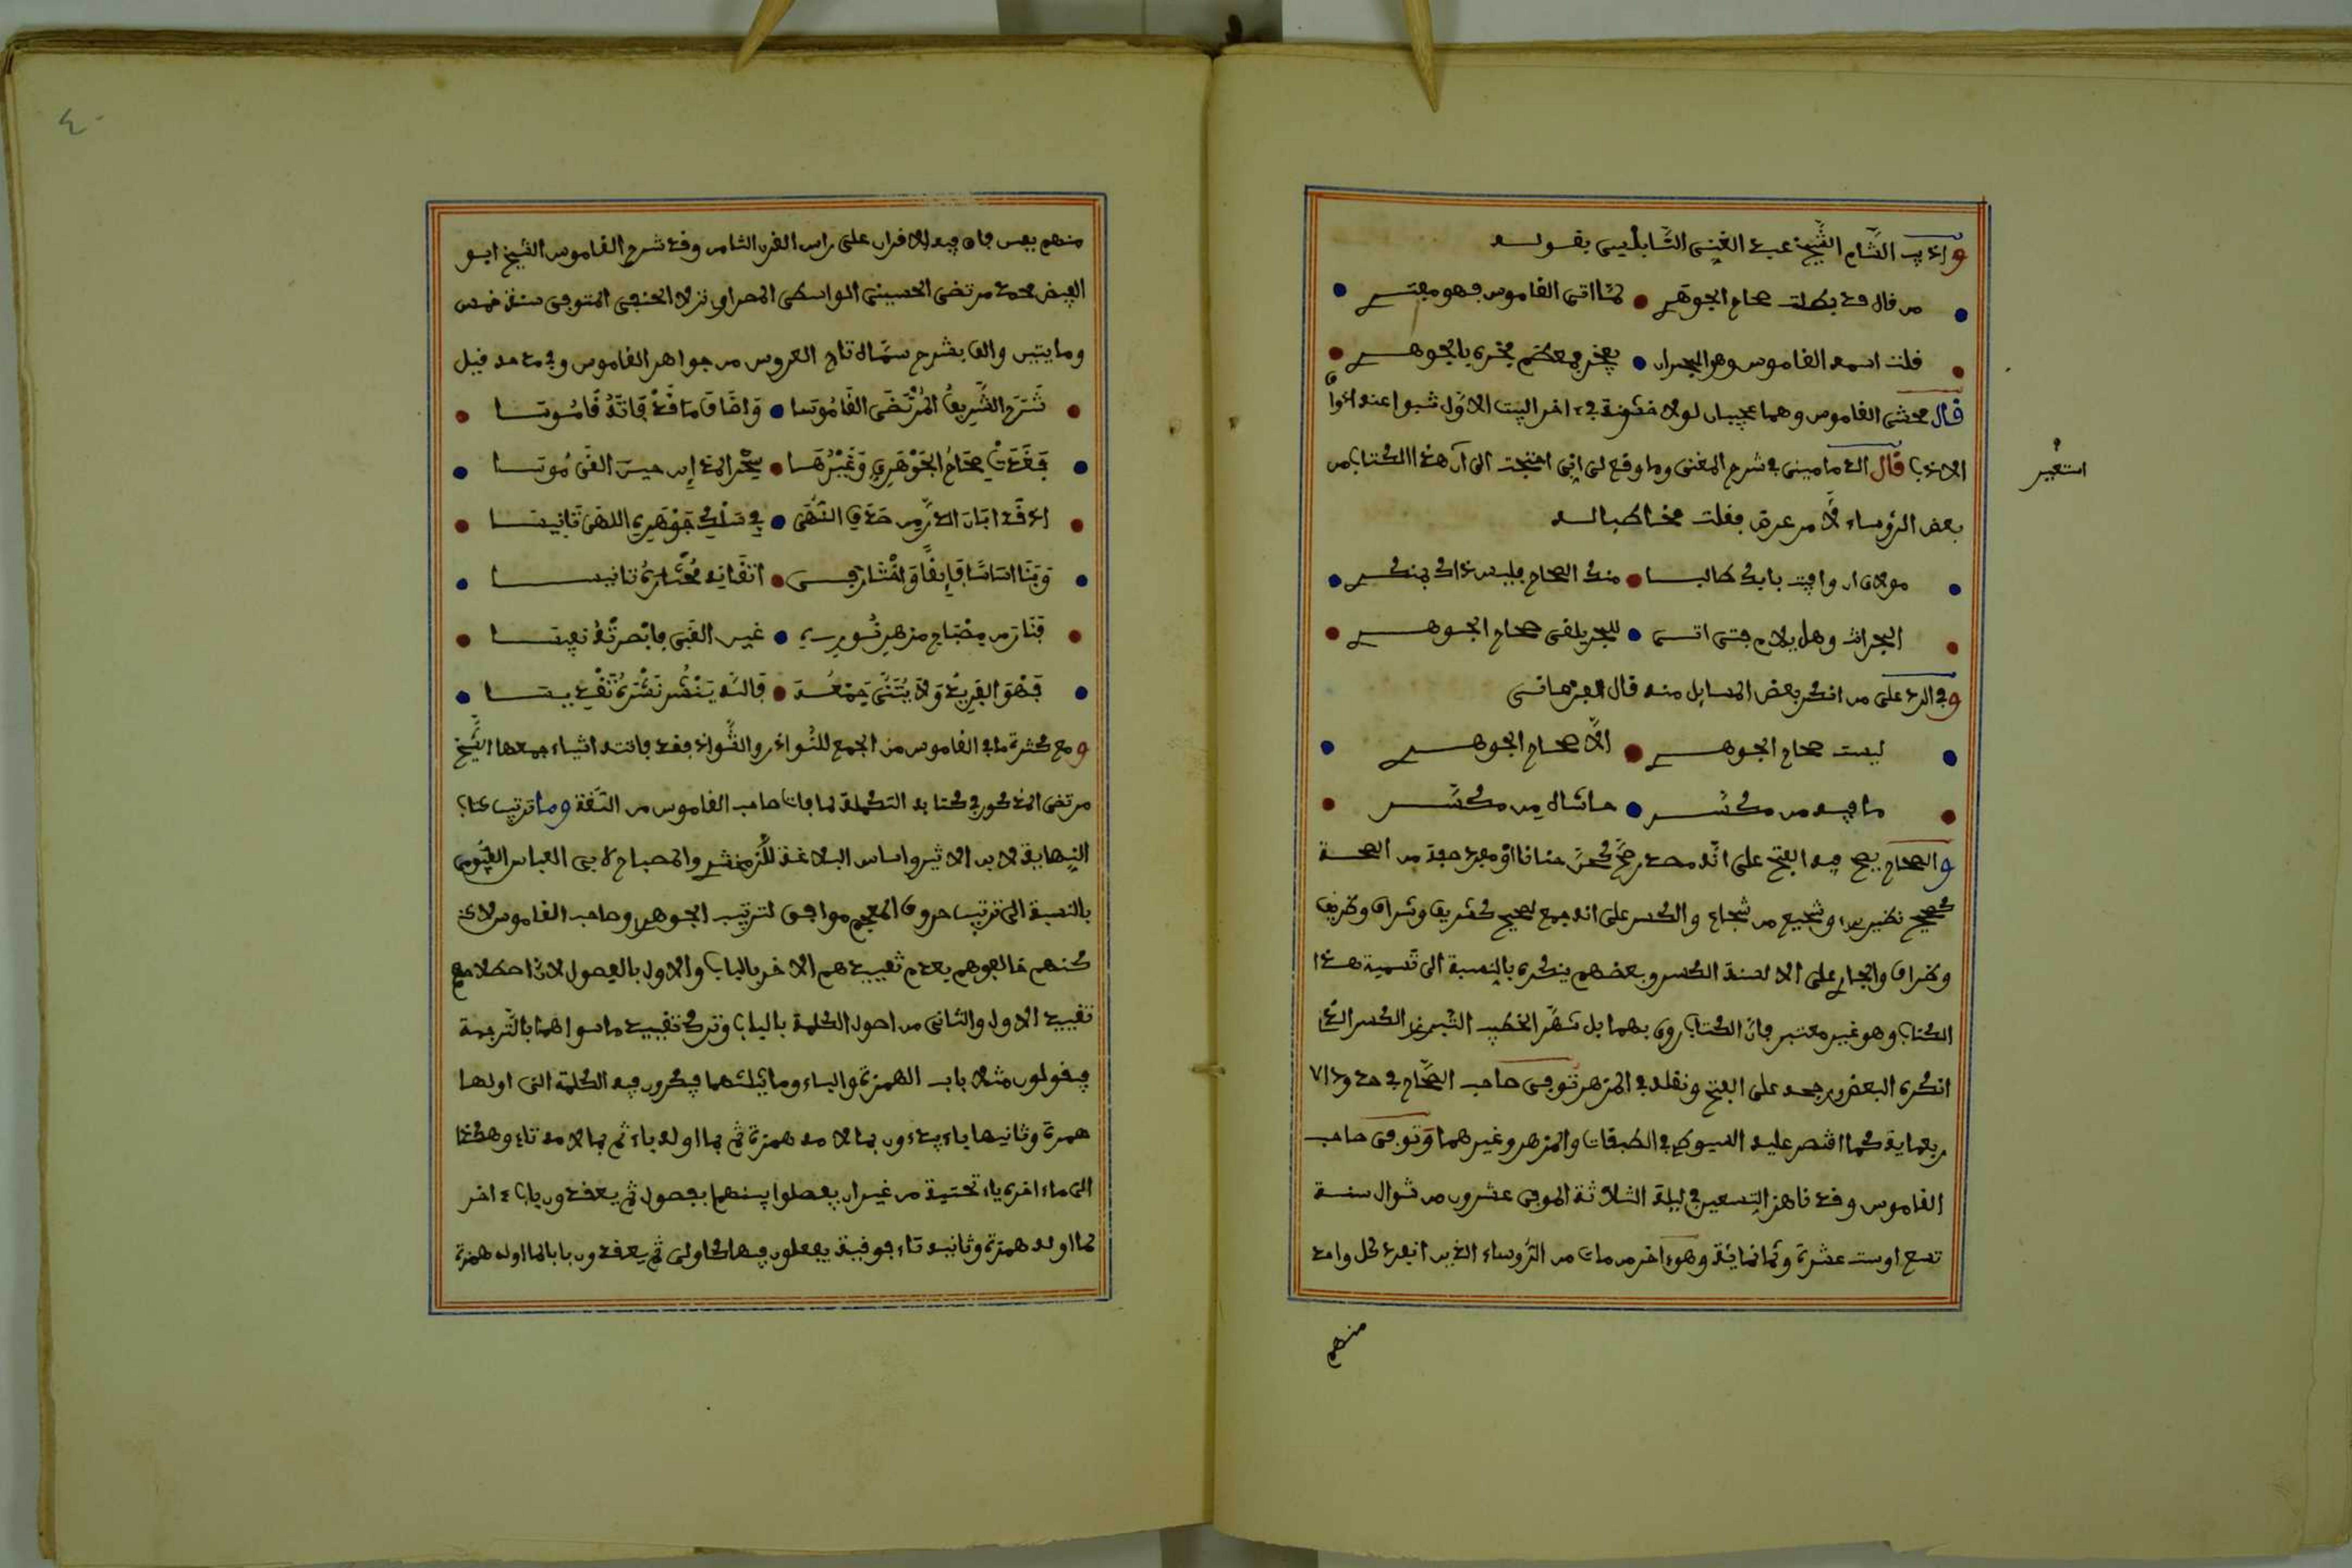 واديب الشام الشيخ عبد الغني النابلسي بقوله
من قال قد بطلت صحاح الجوهري • لما اتى القاموس فهو مفتري
قلت اسمه القاموس وهو البحر ان • يفخر فمعظم فخره بالجوهر
قال محشى القاموس وهما عجيبان لولا خشونة في ءاخر البيت الاول نبوا عنه اذواق
الادباء قال الدماميني في شرح المغني وما وقع لي اني احتجت الى ان هذا الكتاب من
استعير
بعض الرؤساء فقلت مخاطبا له
مولاي ان وافيت بابك طالبا • منك الصحاح فليس ذاك بمنكر
البحر انت وهل يلام فتى اتى • للبحر يلقى صحاح الجوهر
وفي الرد على من انكر بعض المسايل منه قال
ليست صحاح الجوهري • الا صحاح الجوهر
ما فيه من مكسر • حاشاه من مكسر
والصحاح يصح فيه الفتح على انه مصدر صح كحن حنانا او مفرد صفة من الصحة
كصحيح نظير وشجيع من شجاع والكسر على انه جمع صحيح كشريف وشراف وظريف
وظراف والجاري على الالسنة الكسر وبعضهم ينكره بالنسبة الى تسمية هذا
الكتاب وهو غير معتبر فان الكتاب روى بهما بل شهر الخطيب التبريزي الكسر الذي
انكره البعض ورجحه على الفتح ونقله في المزهر توفى صاحب الصحاح في حدود الا
ربعماية كما اقتصر عليه السيوطي في الطبقات والمزهر وغيرهما وتوفى صاحب
القاموس وقد ناهز التسعين في ليلة الثلاثة الموفى عشرون من شوال سنة
تسع او ست عشرة وثمانمائة وهو ءاخر من مات من الرؤساء الذين انفرد كل واحد
منهم
٤٠
منهم بفن فاق فيه الاقران على راس القرن الثامن وقد شرح القاموس الشيخ ابو
الفيض محمد مرتضى الحسيني الواسطي المصراوي نزلا الحنفي المتوفى سنة خمس
ومايتين والف بشرح سماه تاج العروس من جواهر القاموس وفي مدحه قيل
شرح الشريف المرتضى القاموسا • واضاف ما قد فاته قاموسا
فغدت صحاح الجوهري وغيرها • سحر المداين حين القى موسى
اذ قد ابان الدر من صدف النهى • في سلك جوهري اللهى تانيسا
وبنا اساسا فايقا واختار في • اتقانه مختاره تاسيسا
فنار من مصباح مزهر نوره • غير الغبي فابصرته نفيسا
فهو الفريد ولا يثنى جمعه • قالته ينشر نشره تقديسا
ومع كثرة ما في القاموس من الجمع للنوادر والشوارد فقد فاتته اشياء جمعها الشيخ
مرتضى المذكور في كتابه التكملة لما فات صاحب القاموس من اللغة وما ترتيب كتاب
النهاية لابن الاثير واساس البلاغة للزمخشري والمصباح لابي العباس الفيومي
بالنسبة الى ترتيب حروف المعجم موافق لترتيب الجوهري وصاحب القاموس لا
كنهم خالفوهم بعدم تقييدهم الاخر بالباب والاول بالفصول لان اصطلاحهم
تقييد الاول والثاني من اصول الكلمة بالباب وترك تقييد ما سواهما بالترجمة
فيقولون مثلا باب الهمزة والباء وما يثلثهما فيذكرون فيه الكلمة التي اولها
همزة وثانيها باء يبدءون بما لامه همزة ثم بما اوله باء ثم بما لامه تاء وهكذا
الى ما ءاخره ياء تحتية من غير ان يفصلوا بينهما بفصول ثم يعقدون بابا ءاخر
لما اوله همزة وثانيه تاء فوقية يفعلون فيها كاولى ثم يعقدون بابا لما اوله همزة